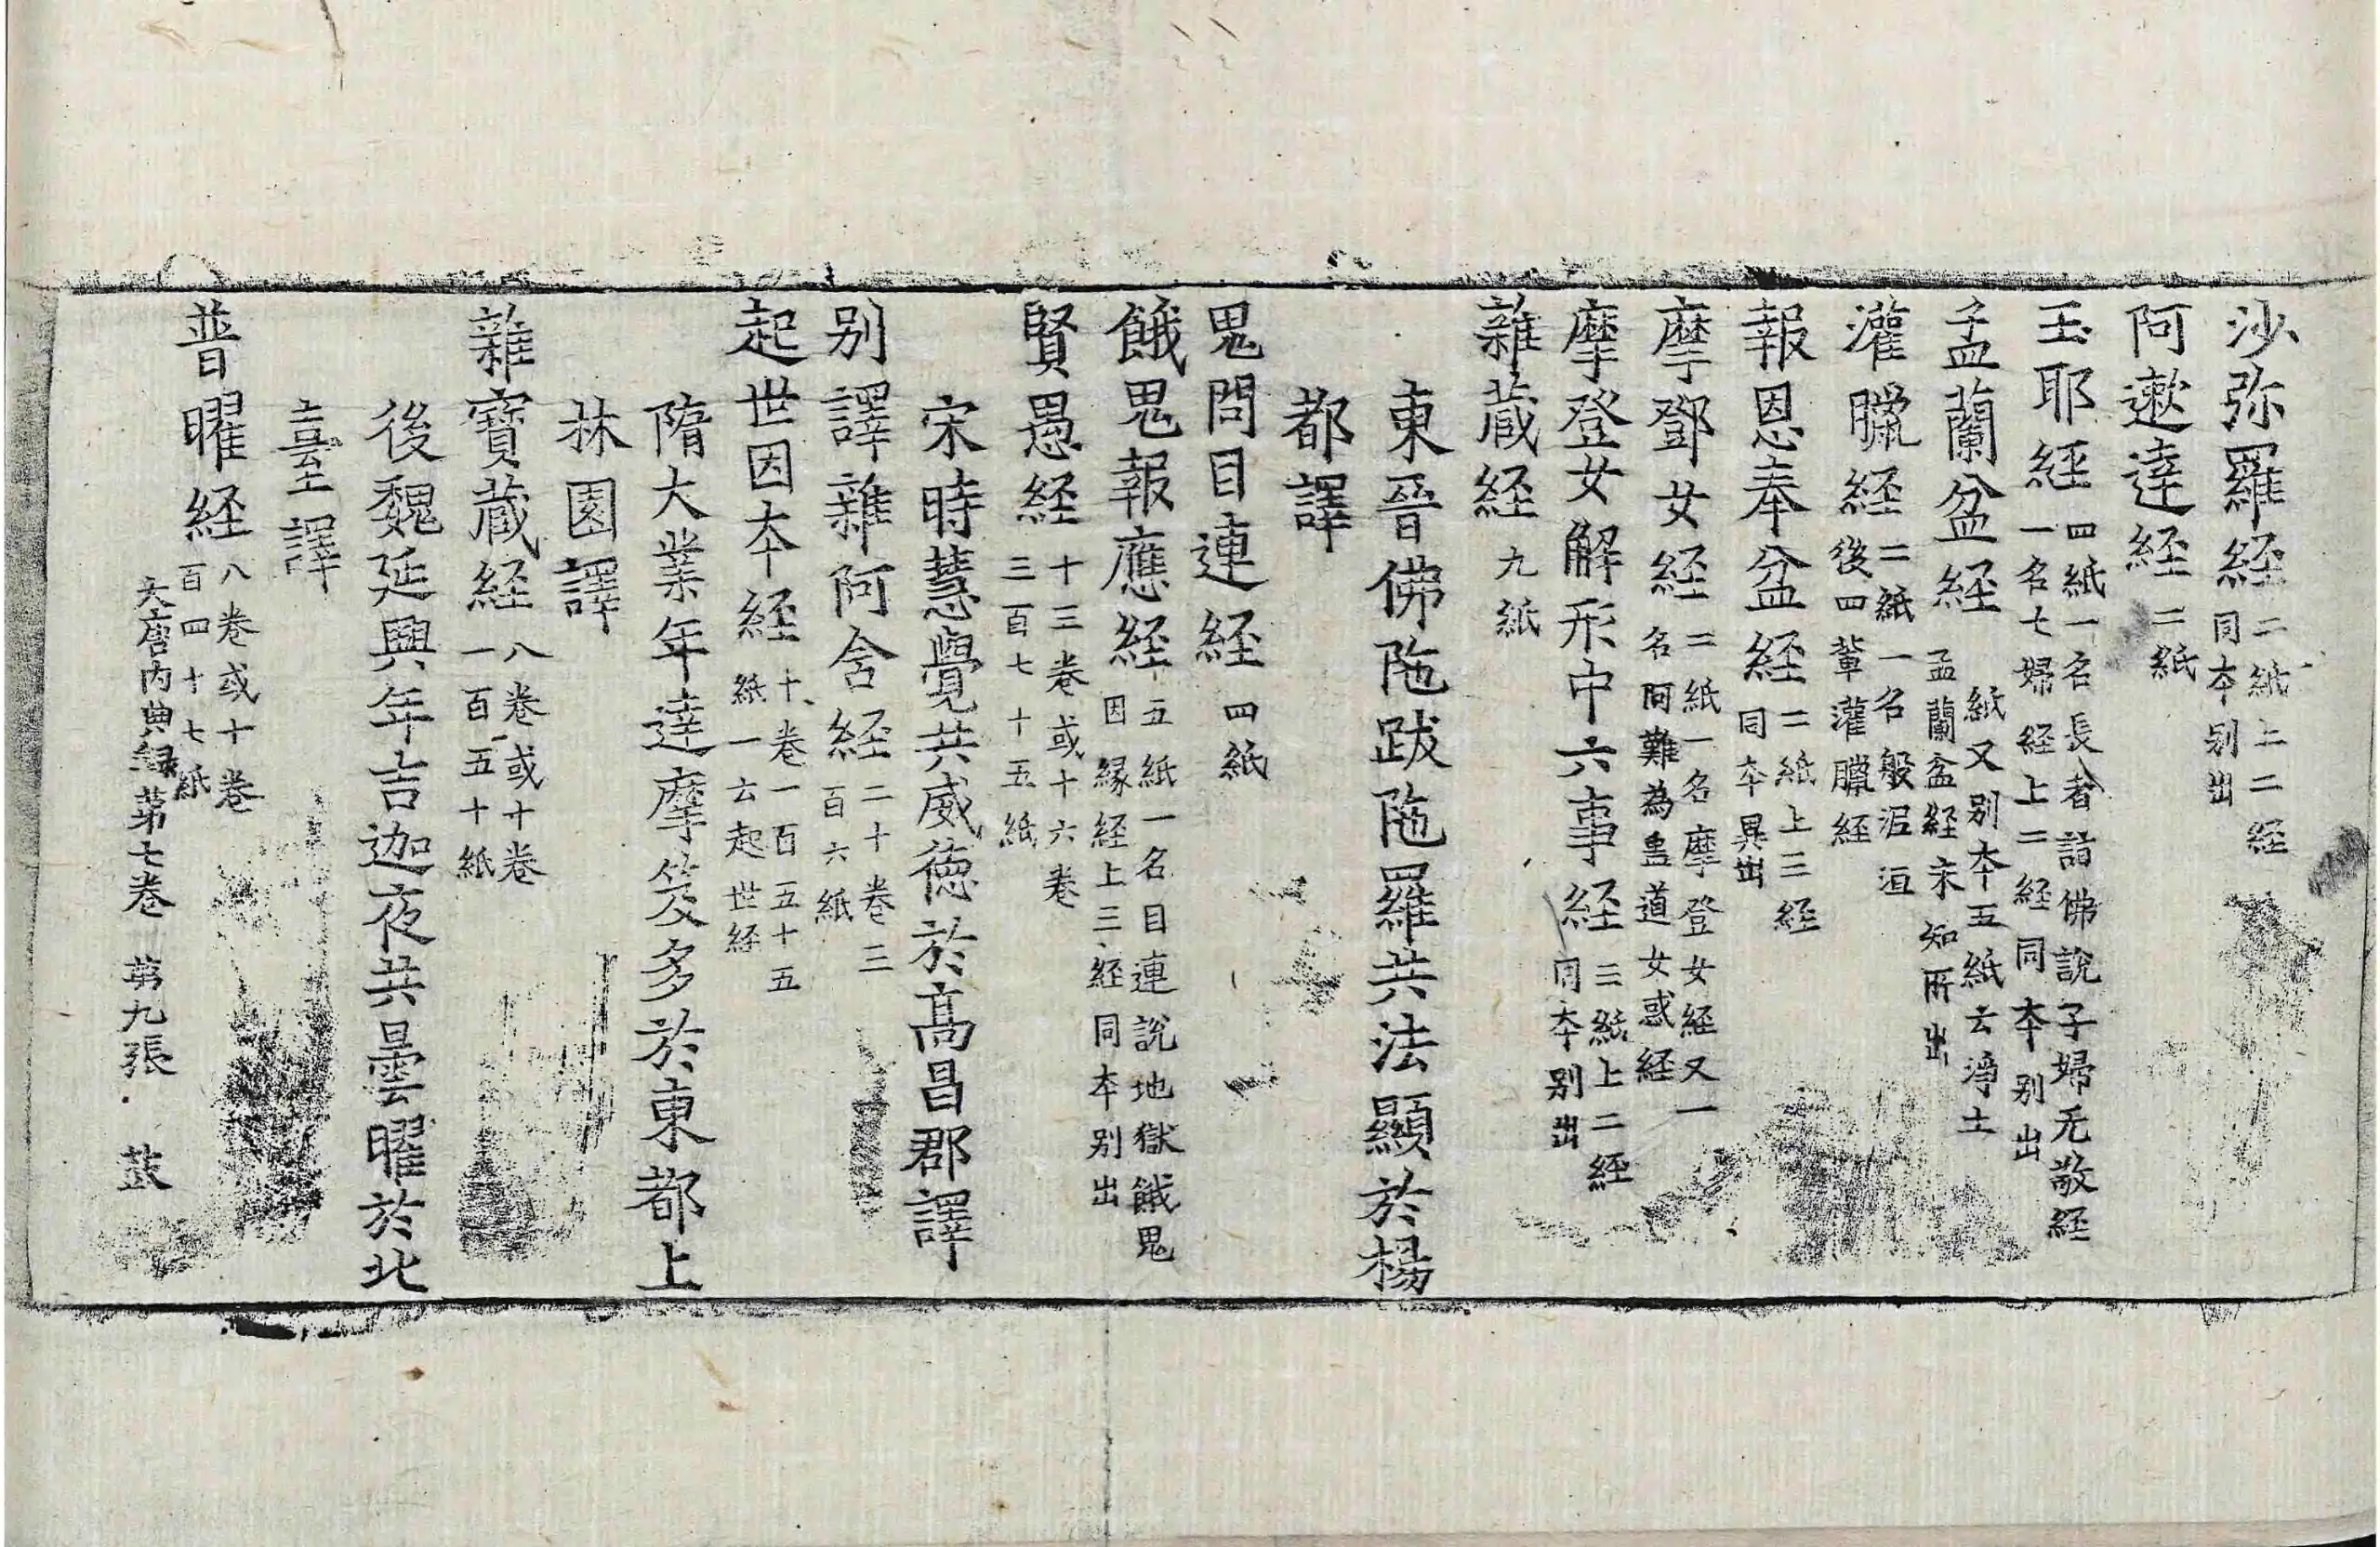 沙弥羅経二紙上二経
同本别出
阿遬達経二紙
玉耶経四紙一名長者詣佛說子婦无敬経
一名七婦経上二経同本别出
盂蘭盆経紙又别本五紙云淨土
盂蘭盆経未知所出
灌臘経二紙一名般泥洹
後四輩灌臘経
報恩奉盆経二紙上三経
同本異出
摩鄧女経二紙一名摩登女経又一
名阿難為蠱道女惑経
摩登女解形中六事経三紙上二経
同本别出
雜蔵経九紙
東晉佛陁跋陁羅共法顯於楊
都譯
鬼問目連経四紙
餓鬼報應経五紙一名目連說地獄餓鬼
因縁経上三経同本别出
賢愚経十三卷或十六卷
三百七十五紙
宋時慧覺共威徳於髙昌郡譯
别譯雜阿含経二十卷三
百六紙
起世因本経十卷一百五十五
紙一云起世経
隋大業年達摩笈多於東都上
林園譯
雜寶蔵経八卷或十卷
一百五十紙
後魏延興年吉迦夜共曇曜於北
臺譯
普曜経八卷或十卷
百四十七紙
大唐内典録苐七卷 苐九張